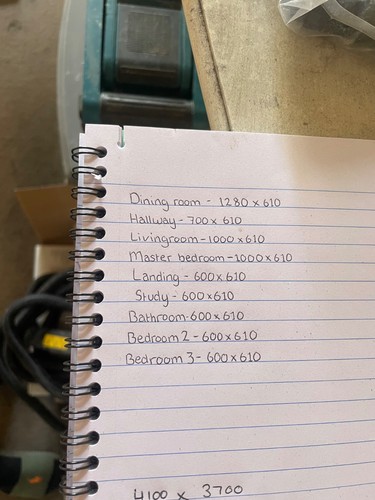 Dining room - 1280 x 610
Hallway - 700 x 610
Livingroom - 1000 x 610
Master bedroom - 1000 x 610
Landing - 600 x 610
Study - 600 x 610
Bathroom - 600 x 610
Bedroom 2 - 600 x 610
Bedroom 3 - 600 x 610
4100 x 3700